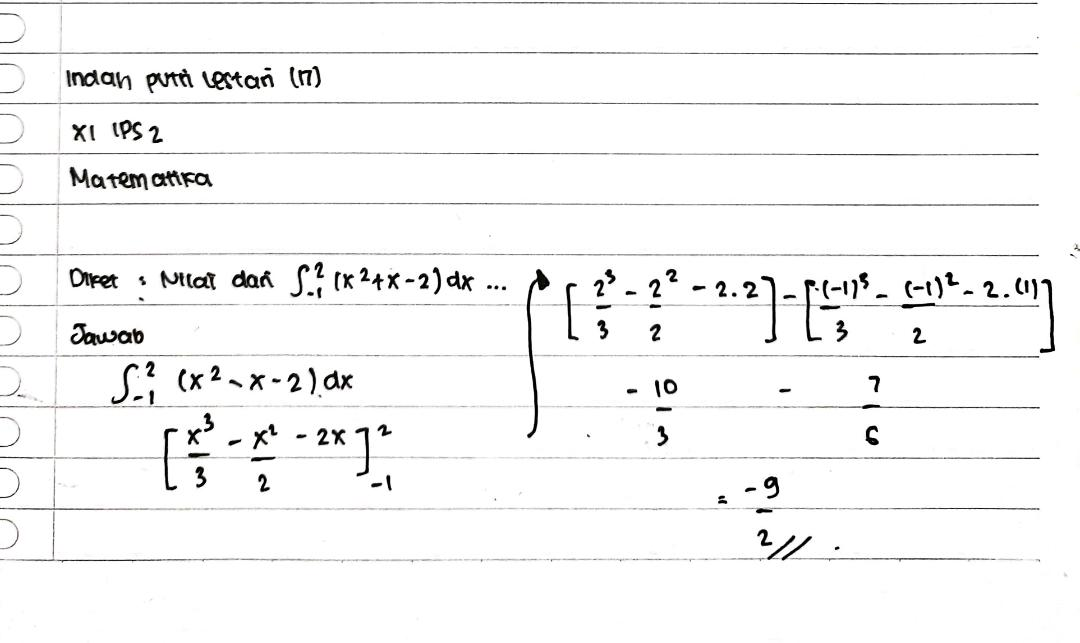 Indah putri lestari (17)
XI IPS 2
Matematika
Diket : Nilai dari ∫₋₁² (x²+x-2) dx ...
Jawab
∫₋₁² (x²-x-2) dx
[x³/3 - x²/2 - 2x]₋₁²
[2³/3 - 2²/2 - 2.2] - [(-1)³/3 - (-1)²/2 - 2.(1)]
- 10/3 - 7/6
= -9/2 //.